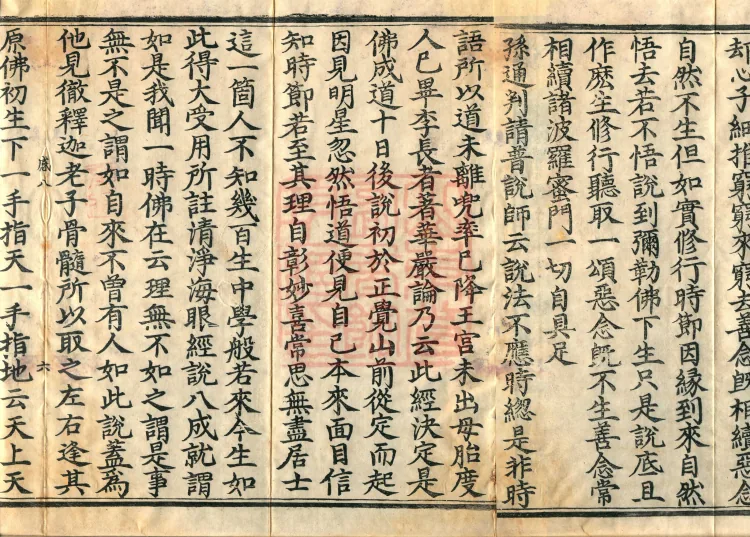 却心子細推窮窮來窮去善念既相續惡念
自然不生但如實修行時節因緣到來自然
悟去若不悟說到彌勒佛下生只是說底且
作麽生修行聽取一頌惡念旣不生善念常
相續諸波羅蜜門一切自具足
孫通判請普說師云說法不應時緫是非時
語所以道未離兜率已降王宮未出母胎度
人已畢李長者著華嚴論乃云此經決定是
佛成道十日後說初於正覺山前從定而起
因見明星忽然悟道便見自己本來面目信
知時節若至其理自彰妙喜常思無盡居士
這一箇人不知幾百生中學般若來今生如
此得大受用所註清淨海眼經說八成就謂
如是我聞一時佛在云理無不如之謂是事
無不是之謂如自來不曾有人如此說蓋為
他見徹釋迦老子骨髓所以取之左右逢其
感八
六
原佛初生下一手指天一手指地云天上天